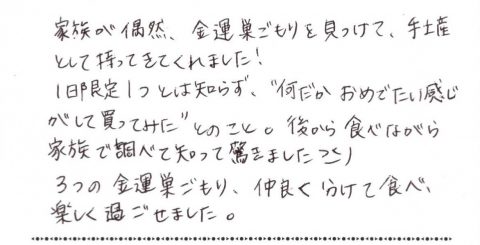 家族が偶然、金運巣ごもりを見つけて、手土産
として持ってきてくれました!
1日限定1つとは知らず、"何だか おめでたい感じ
がして買ってみた"とのこと。後から食べながら
家族で調べて知って驚きました
3つの金運巣ごもり、仲良く分けて食べ、
楽しく過ごせました。